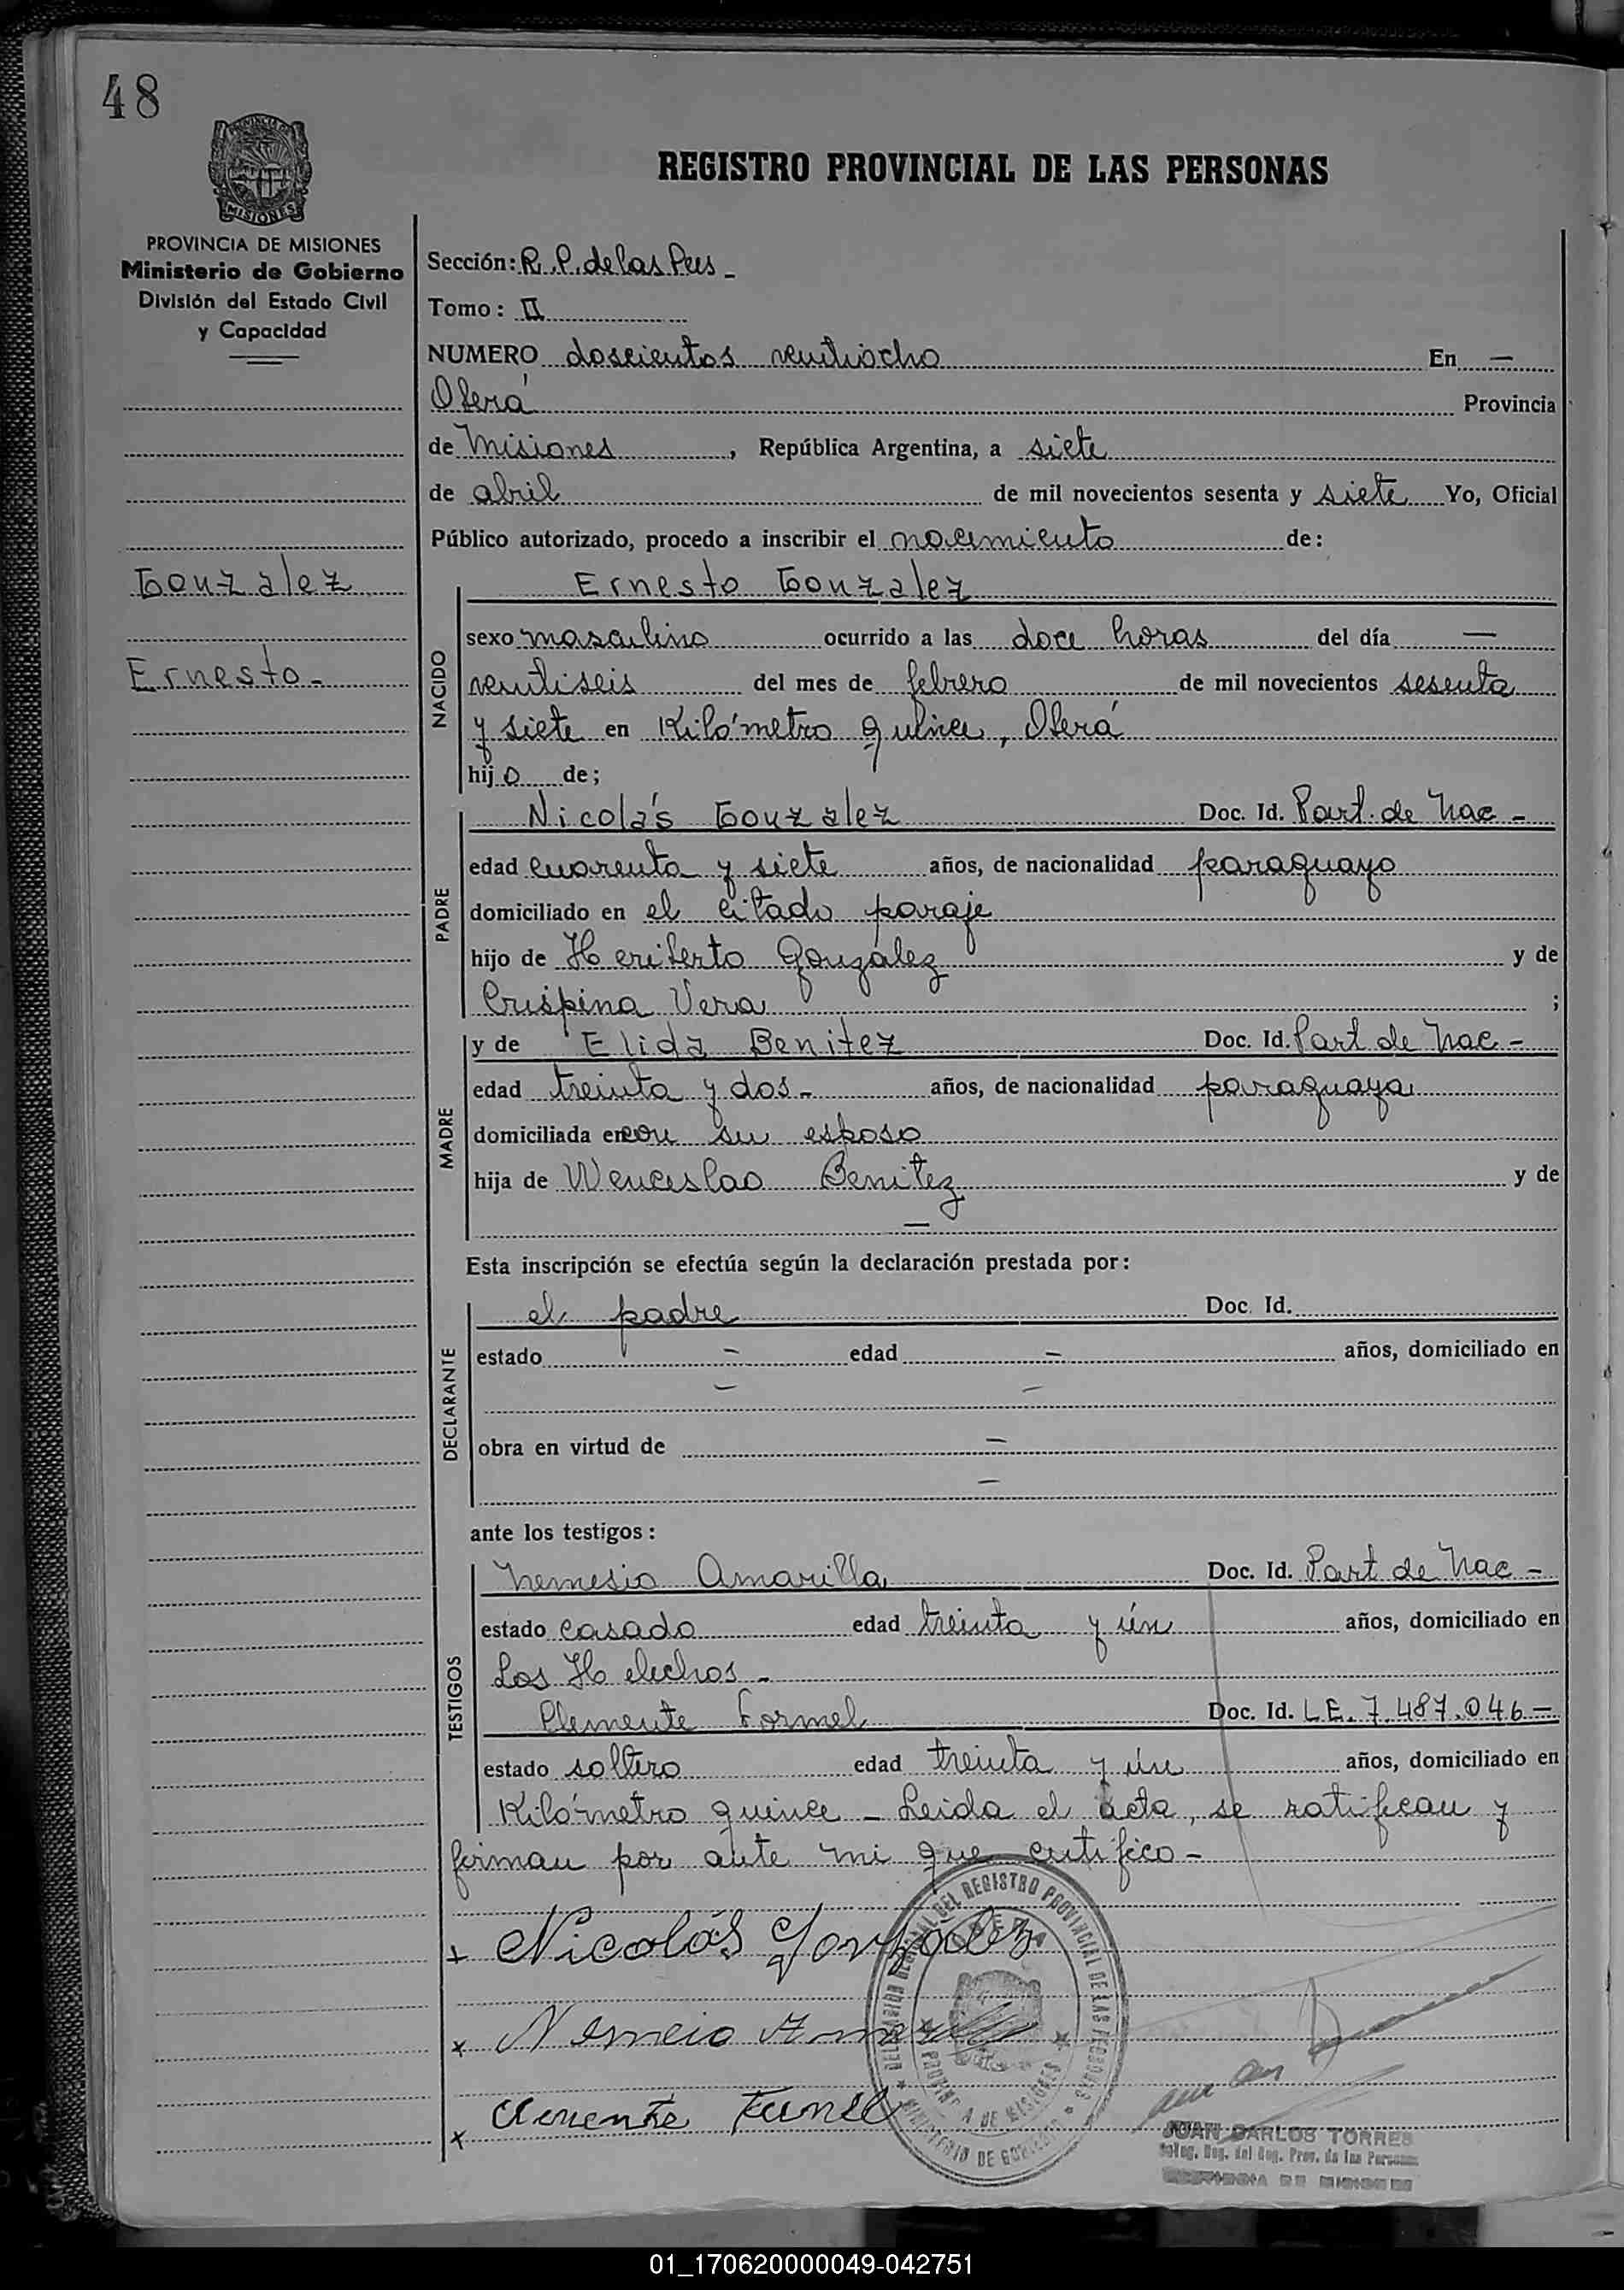 48
PROVINCIA DE MISIONES
Ministerio de Gobierno
División del Estado Civil
y Capacidad
Gonzalez
Ernesto -
REGISTRO PROVINCIAL DE LAS PERSONAS
Sección: R. P. de las Pers -
Tomo: II
NUMERO doscientos ventiocho En —
Oberá Provincia
de Misiones, República Argentina, a siete
de abril de mil novecientos sesenta y siete Yo, Oficial
Público autorizado, procedo a inscribir el nacimiento de:
NACIDO
Ernesto Gonzalez
sexo masculino ocurrido a las doce horas del día —
ventiseis del mes de febrero de mil novecientos sesenta
y siete en Kilómetro quince, Oberá
hijo de;
PADRE
Nicolás Gonzalez Doc. Id. Part. de Nac -
edad cuarenta y siete años, de nacionalidad paraguayo
domiciliado en el citado paraje
hijo de Heriberto González y de
Crispina Vera ;
MADRE
y de Elida Benitez Doc. Id. Part de Nac -
edad treinta y dos - años, de nacionalidad paraguaya
domiciliada en con su esposo
hija de Wenceslao Benitez y de
—
Esta inscripción se efectúa según la declaración prestada por:
DECLARANTE
el padre Doc. Id.
estado — edad — años, domiciliado en
— —
obra en virtud de —
—
ante los testigos:
TESTIGOS
Nemesio Amarilla Doc. Id. Part de Nac -
estado casado edad treinta y ún años, domiciliado en
Los Helechos -
Clemente Formel Doc. Id. L.E. 7.487.046 —
estado soltero edad treinta y ún años, domiciliado en
Kilómetro quince - Leida el acta, se ratifican y
firman por ante mi que certifico -
x Nicolás González
x
x
DELEGACION REGIONAL DEL REGISTRO PROVINCIAL DE LAS PERSONAS
PROVINCIA DE MISIONES
MINISTERIO DE GOBIERNO
JUAN CARLOS TORRES
Deleg. Reg. del Reg. Prov. de las Personas
01_170620000049-042751